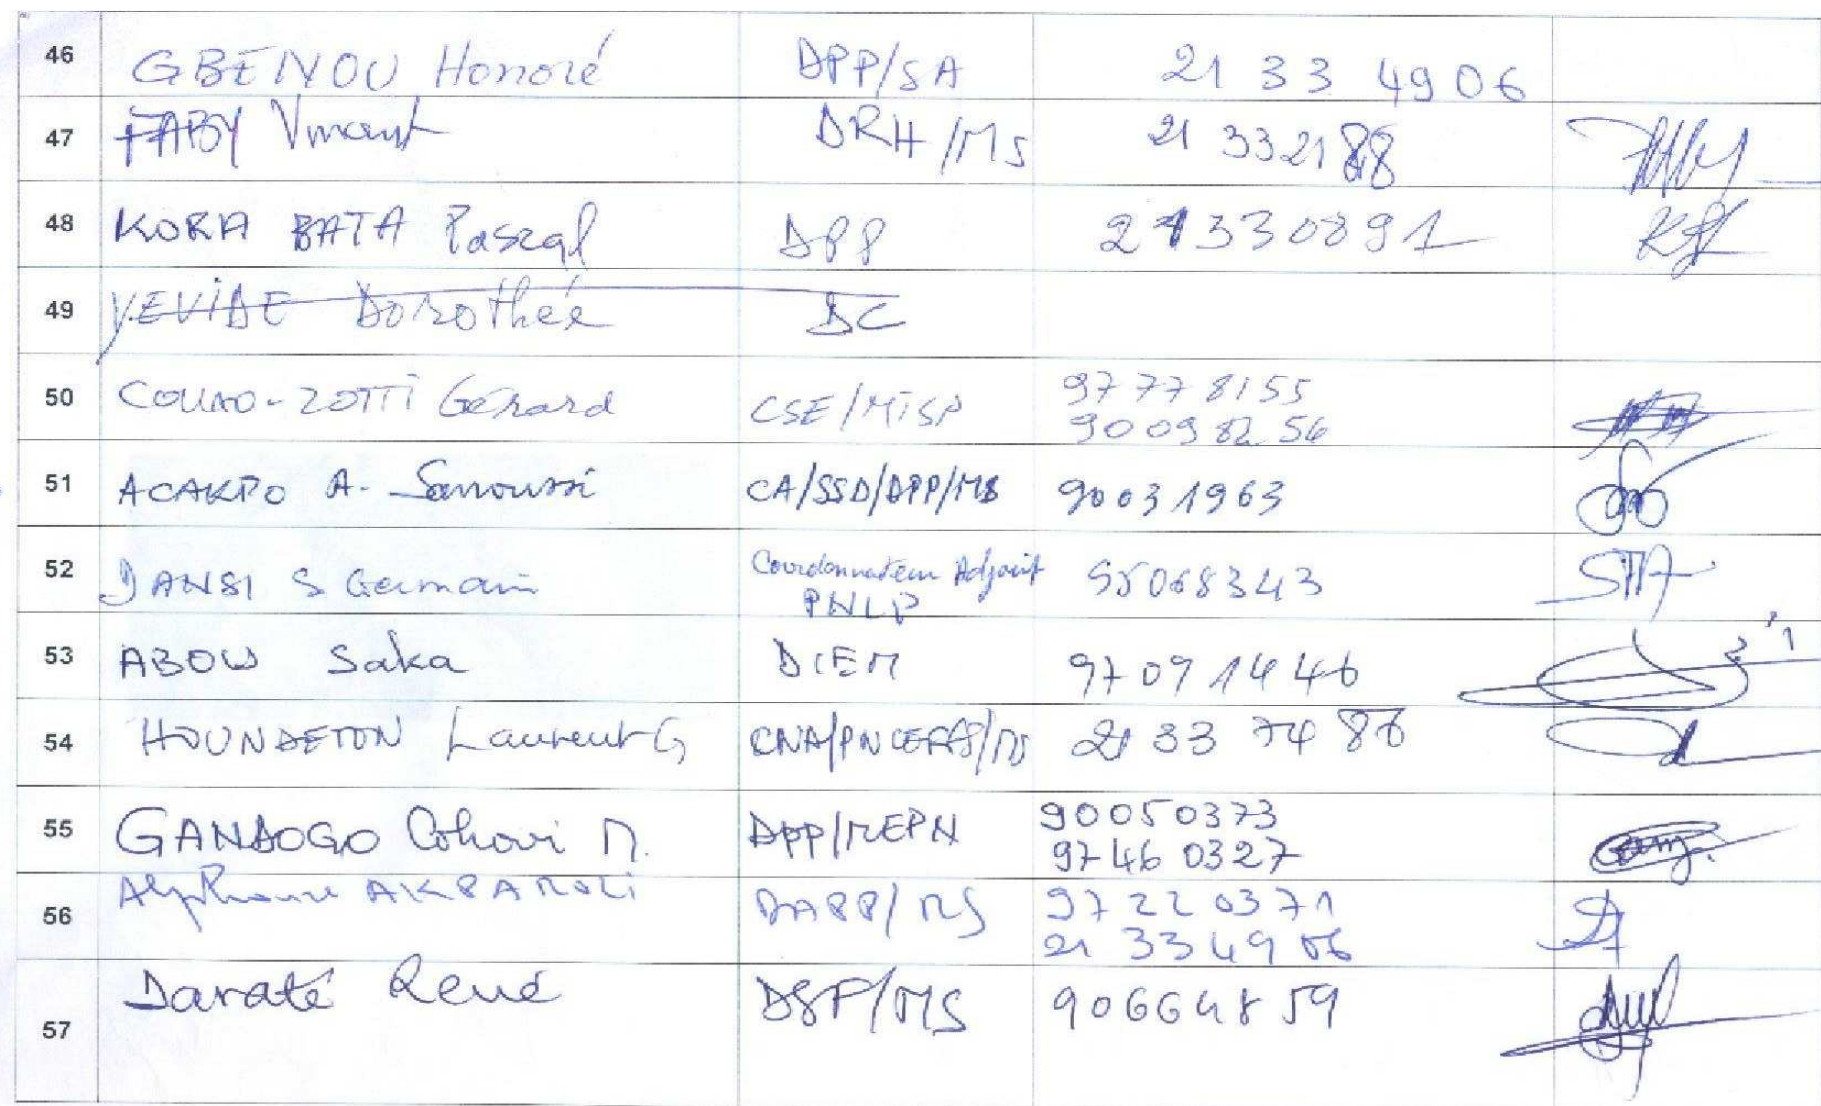 46 GBENOU Honoré DPP/SA 21 33 49 06
47 FABY Vincent DRH/MS 21 33 21 88
48 KORA BATA Pascal DPP 21330891
49 YEVIDE Dorothée DC
50 COUAO-ZOTTI Gérard CSE/MISP 97 77 81 55
90 09 82 56
51 ACAKPO A. Sanoussi CA/SSD/DPP/MS 90031963
52 DANSI S Germain Coordonnateur Adjoint 95068343
PNLP
53 ABOU Saka DIEM 97 09 14 46
54 HOUNDETON Laurent G 21 33 74 86
55 GANDOGO Cohovi M. DPP/MEPN 90050373
97 46 03 27
56 Alphonse DAPP/MS 97 22 03 71
21 33 49 06
57 Daraté René DSF/MS 90664859